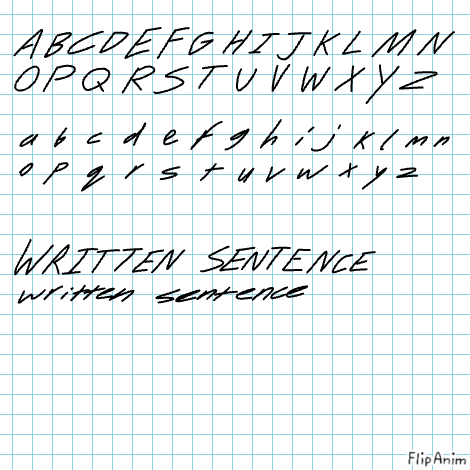 A B C D E F G H I J K L M N
O P Q R S T U V W X Y Z
a b c d e f g h i j k l m n
o p q r s t u v w x y z
WRITTEN SENTENCE
written sentence
FlipAnim